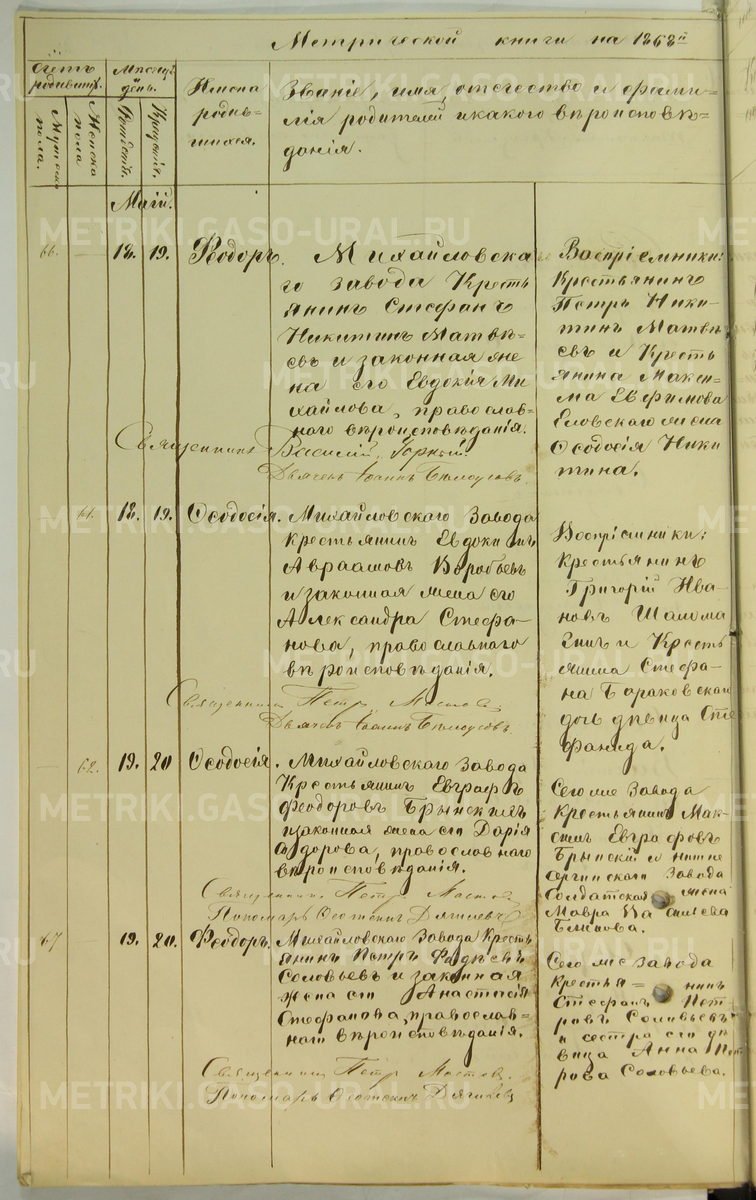 Метрической книги на 1868й
Счетъ родившихся.
Мужеска пола.
Женска пола
Мѣсяцъ и день.
Рожденія.
Крещенія.
Имена родившихся.
Званіе, имя, отчество и фами-
лія родителей и какого вѣроисповѣ-
данія.
Маій.
66. — 18. 19. Ѳеодоръ.
Михайловска-
го завода Кресть
янинъ Стефанъ
Никитинъ Матвѣ-
евъ и законная же
на его Евдокія Ми
хайлова, православ-
наго вѣроисповѣданія.
Священникъ Василій
Дьячекъ Іоаннъ
Воспріемники:
Крестьянинъ
Петръ Ники-
тинъ Матвѣ
евъ и Кресть
янина Макси-
ма Евфимова
Еловскаго жена
Ѳеодосія Ники
тина.
61. 18. 19. Ѳеодосія.
Михайловскаго Завода
Крестьянинъ Евдокимъ
Авраамовъ Воробьевъ
и законная жена его
Александра Стефа-
нова, православнаго
вѣроисповѣданія.
Священникъ Петръ
Дьячекъ Іоаннъ
Воспріемники:
Крестьянинъ
Григорій Ива-
новъ Шалома
и Кресть
янина Стефа-
на
дочь дѣвица Сте
фанида.
— 62. 19. 20 Ѳеодосія.
Михайловскаго Завода
Крестьянинъ Евграфъ
Ѳеодоровъ
и законная жена его Дарія
православнаго
вѣроисповѣданія.
Священникъ Петръ
Пономарь
Сего же Завода
Крестьянинъ Мак-
симъ Евграфовъ
и нижне
сергинскаго Завода
Солдатская жена
Мавра Васильева
67 — 19. 20. Ѳеодоръ.
Михайловскаго Завода Кресть
янинъ Петръ
Соловьевъ и законная
жена его Анастасія
Стефанова, православ-
наго вѣроисповѣданія.
Священникъ Петръ
Пономарь
Сего же завода
Крестья = нинъ
Стефанъ Пет-
ровъ Соловьевъ
и сестра его дѣ
вица Анна Пет
рова Соловьева.
METRIKI.GASO-URAL.RU